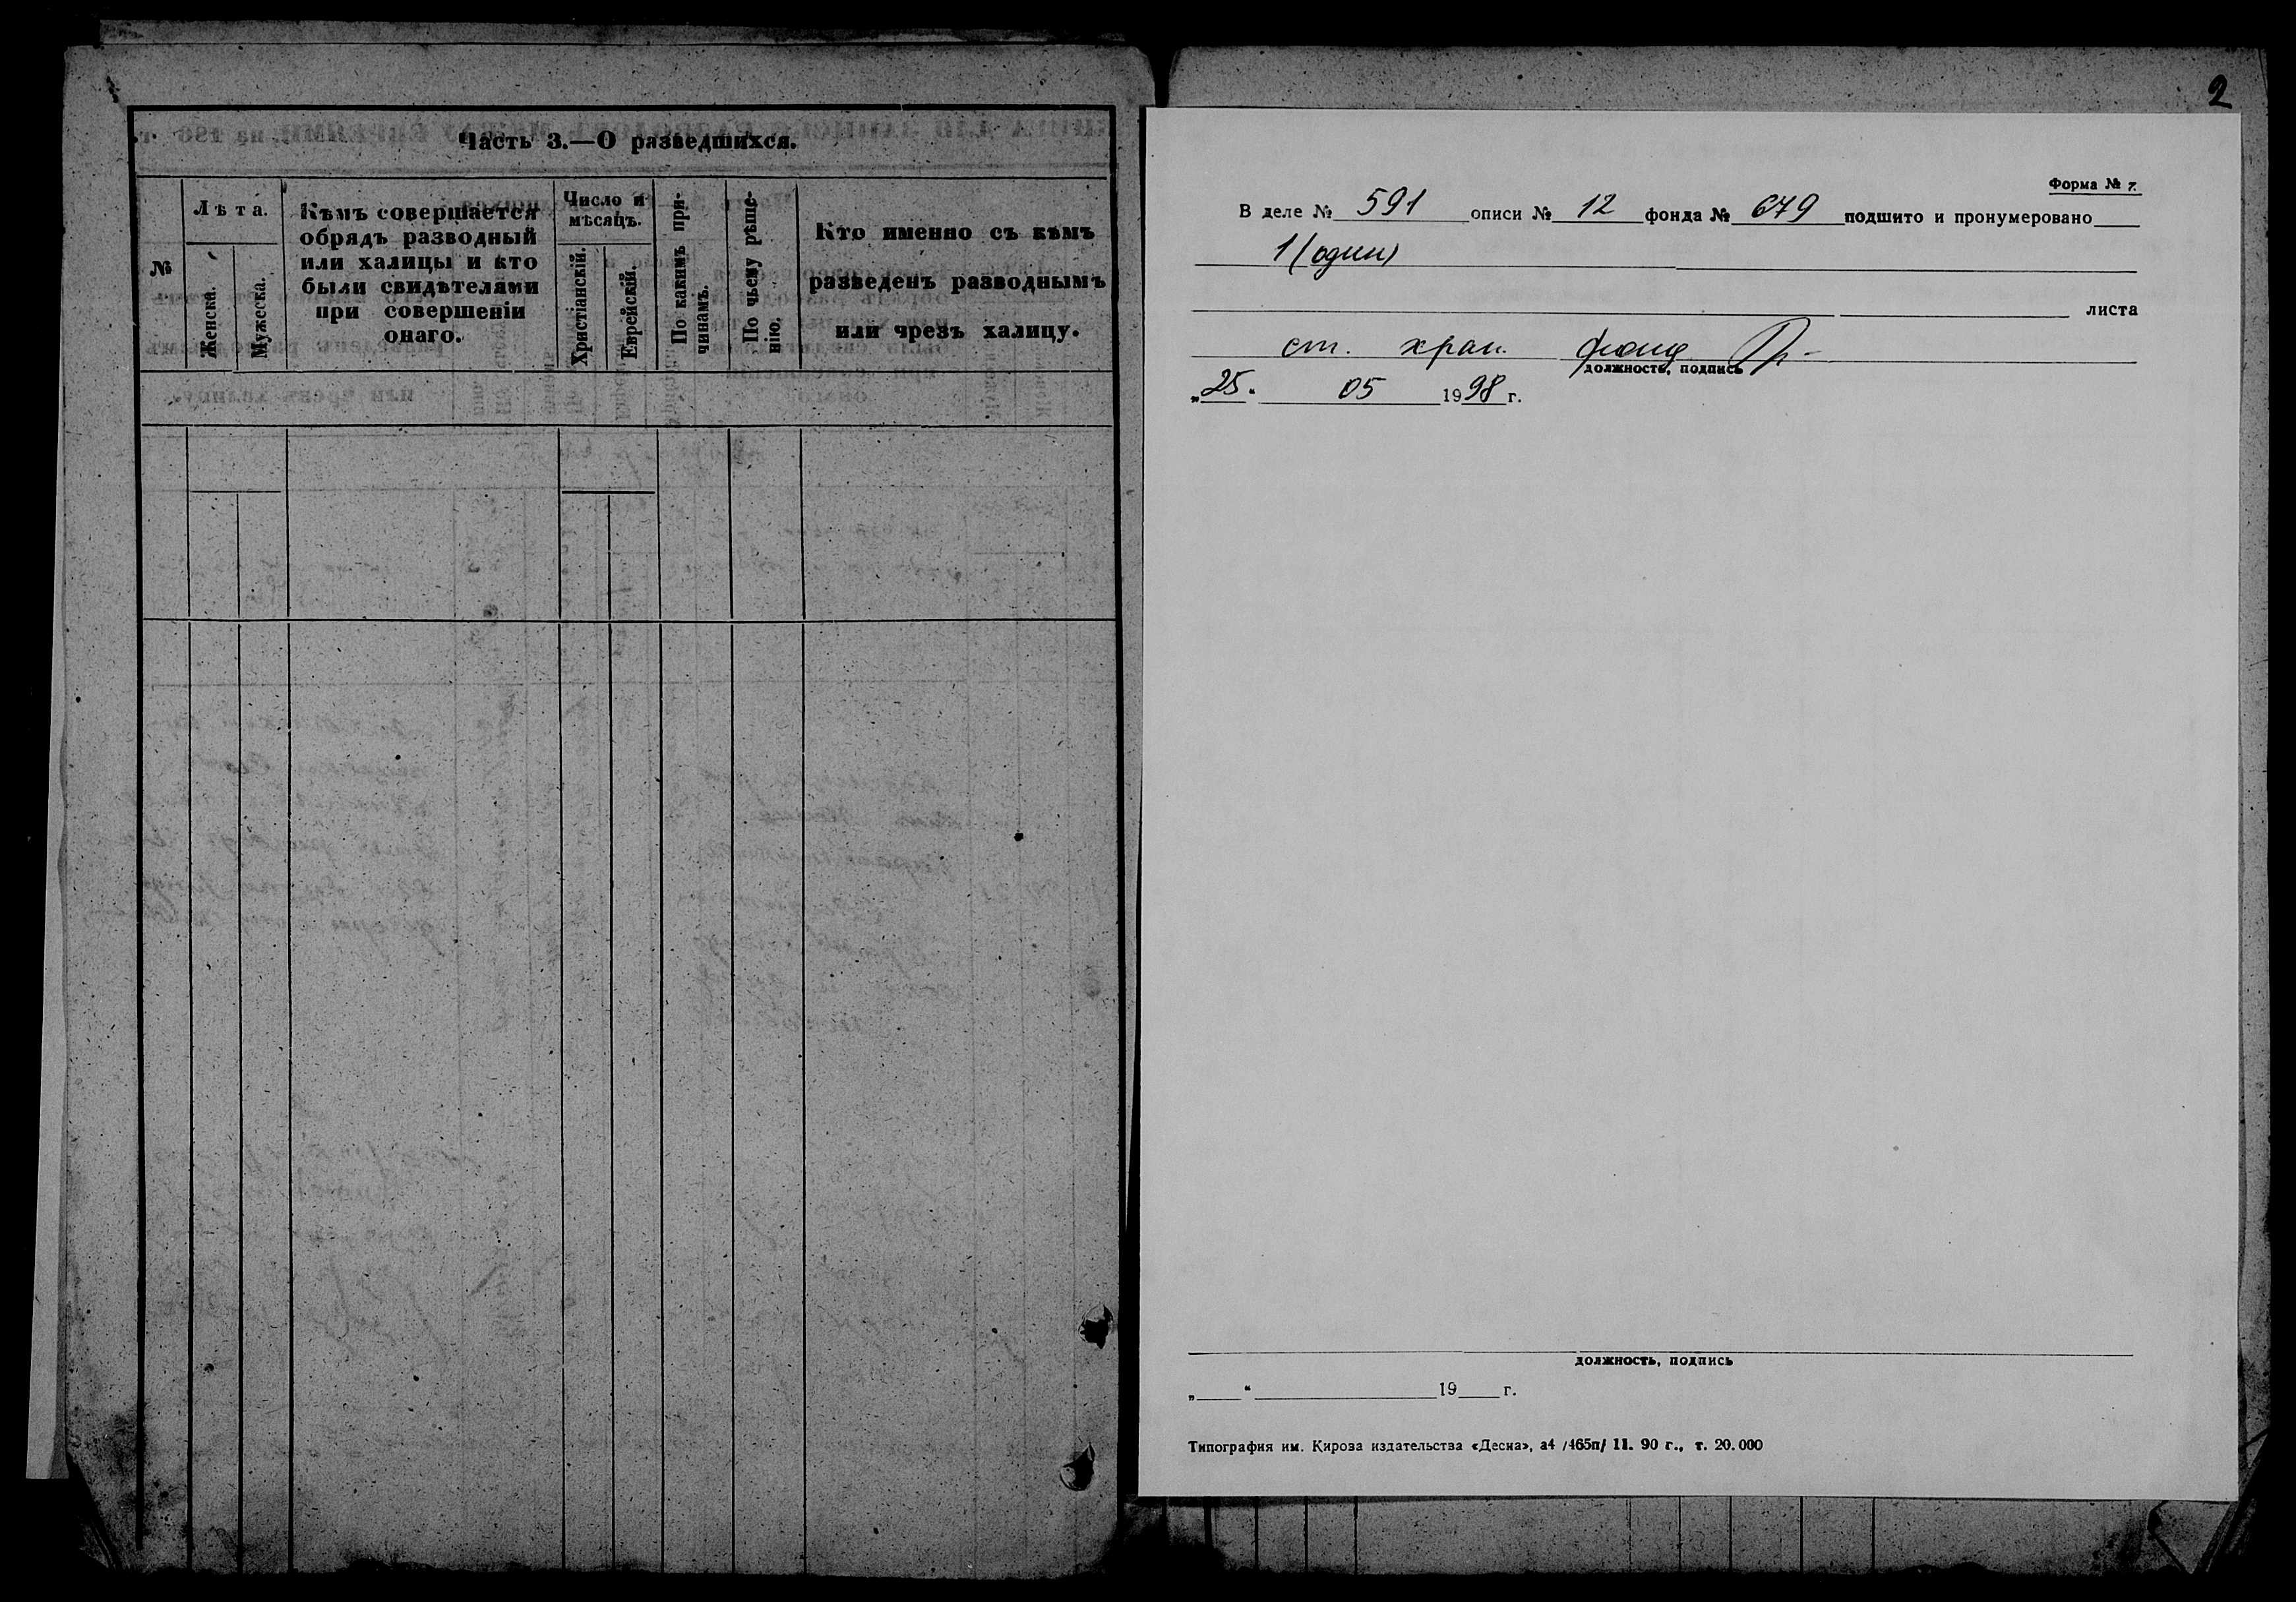 Часть 3.—О разведшихся.
№
Лѣта.
Женска.
Мужеска.
Кѣмъ совершается
обрядъ разводный
или халицы и кто
были свидѣтелями
при совершеніи
онаго.
Число и
мѣсяцъ.
Христіанскій.
Еврейскій.
По какимъ при-
чинамъ.
По чьему рѣше-
нію.
Кто именно съ кѣмъ
разведенъ разводнымъ
или чрезъ халицу.
2
Форма № 7.
В деле № 591 описи № 12 фонда № 679 подшито и пронумеровано
1 (один)
листа
ст. хран. фонд
должность, подпись
„25“ 05 1998 г.
должность, подпись
„ “ 19 г.
Типография им. Кирова издательства «Десна», а4 /465п/ 11. 90 г., т. 20.000